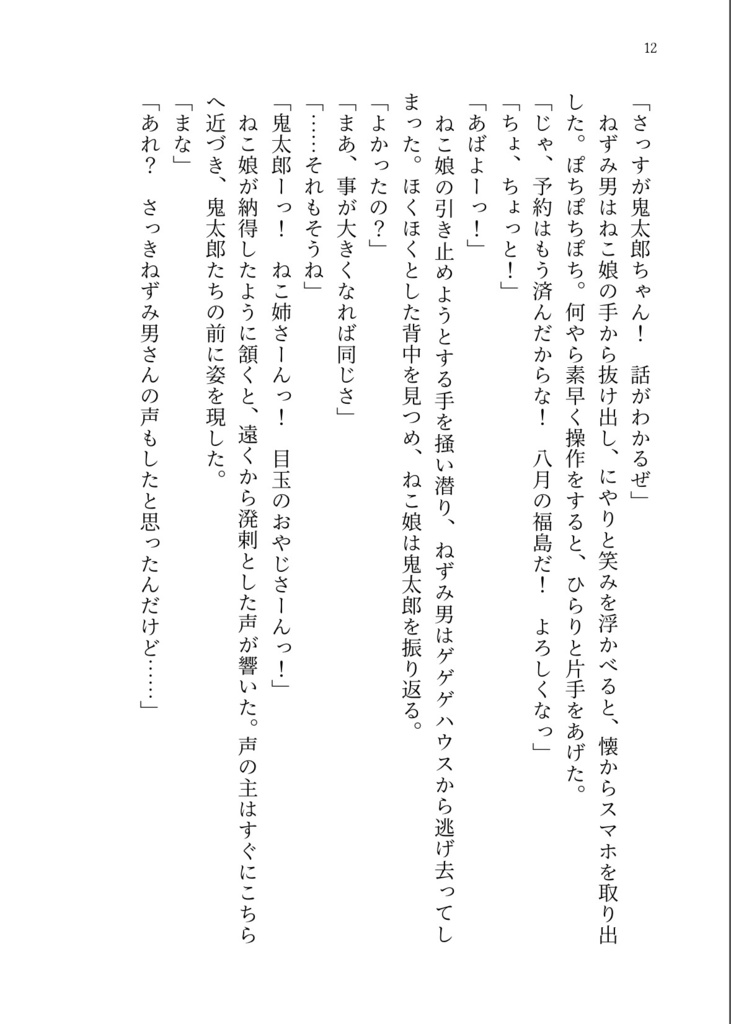 12
「さっすが鬼太郎ちゃん!　話がわかるぜ」
　ねずみ男はねこ娘の手から抜け出し、にやりと笑みを浮かべると、懐からスマホを取り出
した。ぽちぽちぽち。何やら素早く操作をすると、ひらりと片手をあげた。
「じゃ、予約はもう済んだからな!　八月の福島だ!　よろしくなっ」
「ちょ、ちょっと!」
「あばよーっ!」
　ねこ娘の引き止めようとする手を掻い潜り、ねずみ男はゲゲゲハウスから逃げ去ってし
まった。ほくほくとした背中を見つめ、ねこ娘は鬼太郎を振り返る。
「よかったの?」
「まあ、事が大きくなれば同じさ」
「……それもそうね」
「鬼太郎ーっ!　ねこ姉さーんっ!　目玉のおやじさーんっ!」
　ねこ娘が納得したように頷くと、遠くから溌剌とした声が響いた。声の主はすぐにこちら
へ近づき、鬼太郎たちの前に姿を現した。
「まな」
「あれ?　さっきねずみ男さんの声もしたと思ったんだけど……」